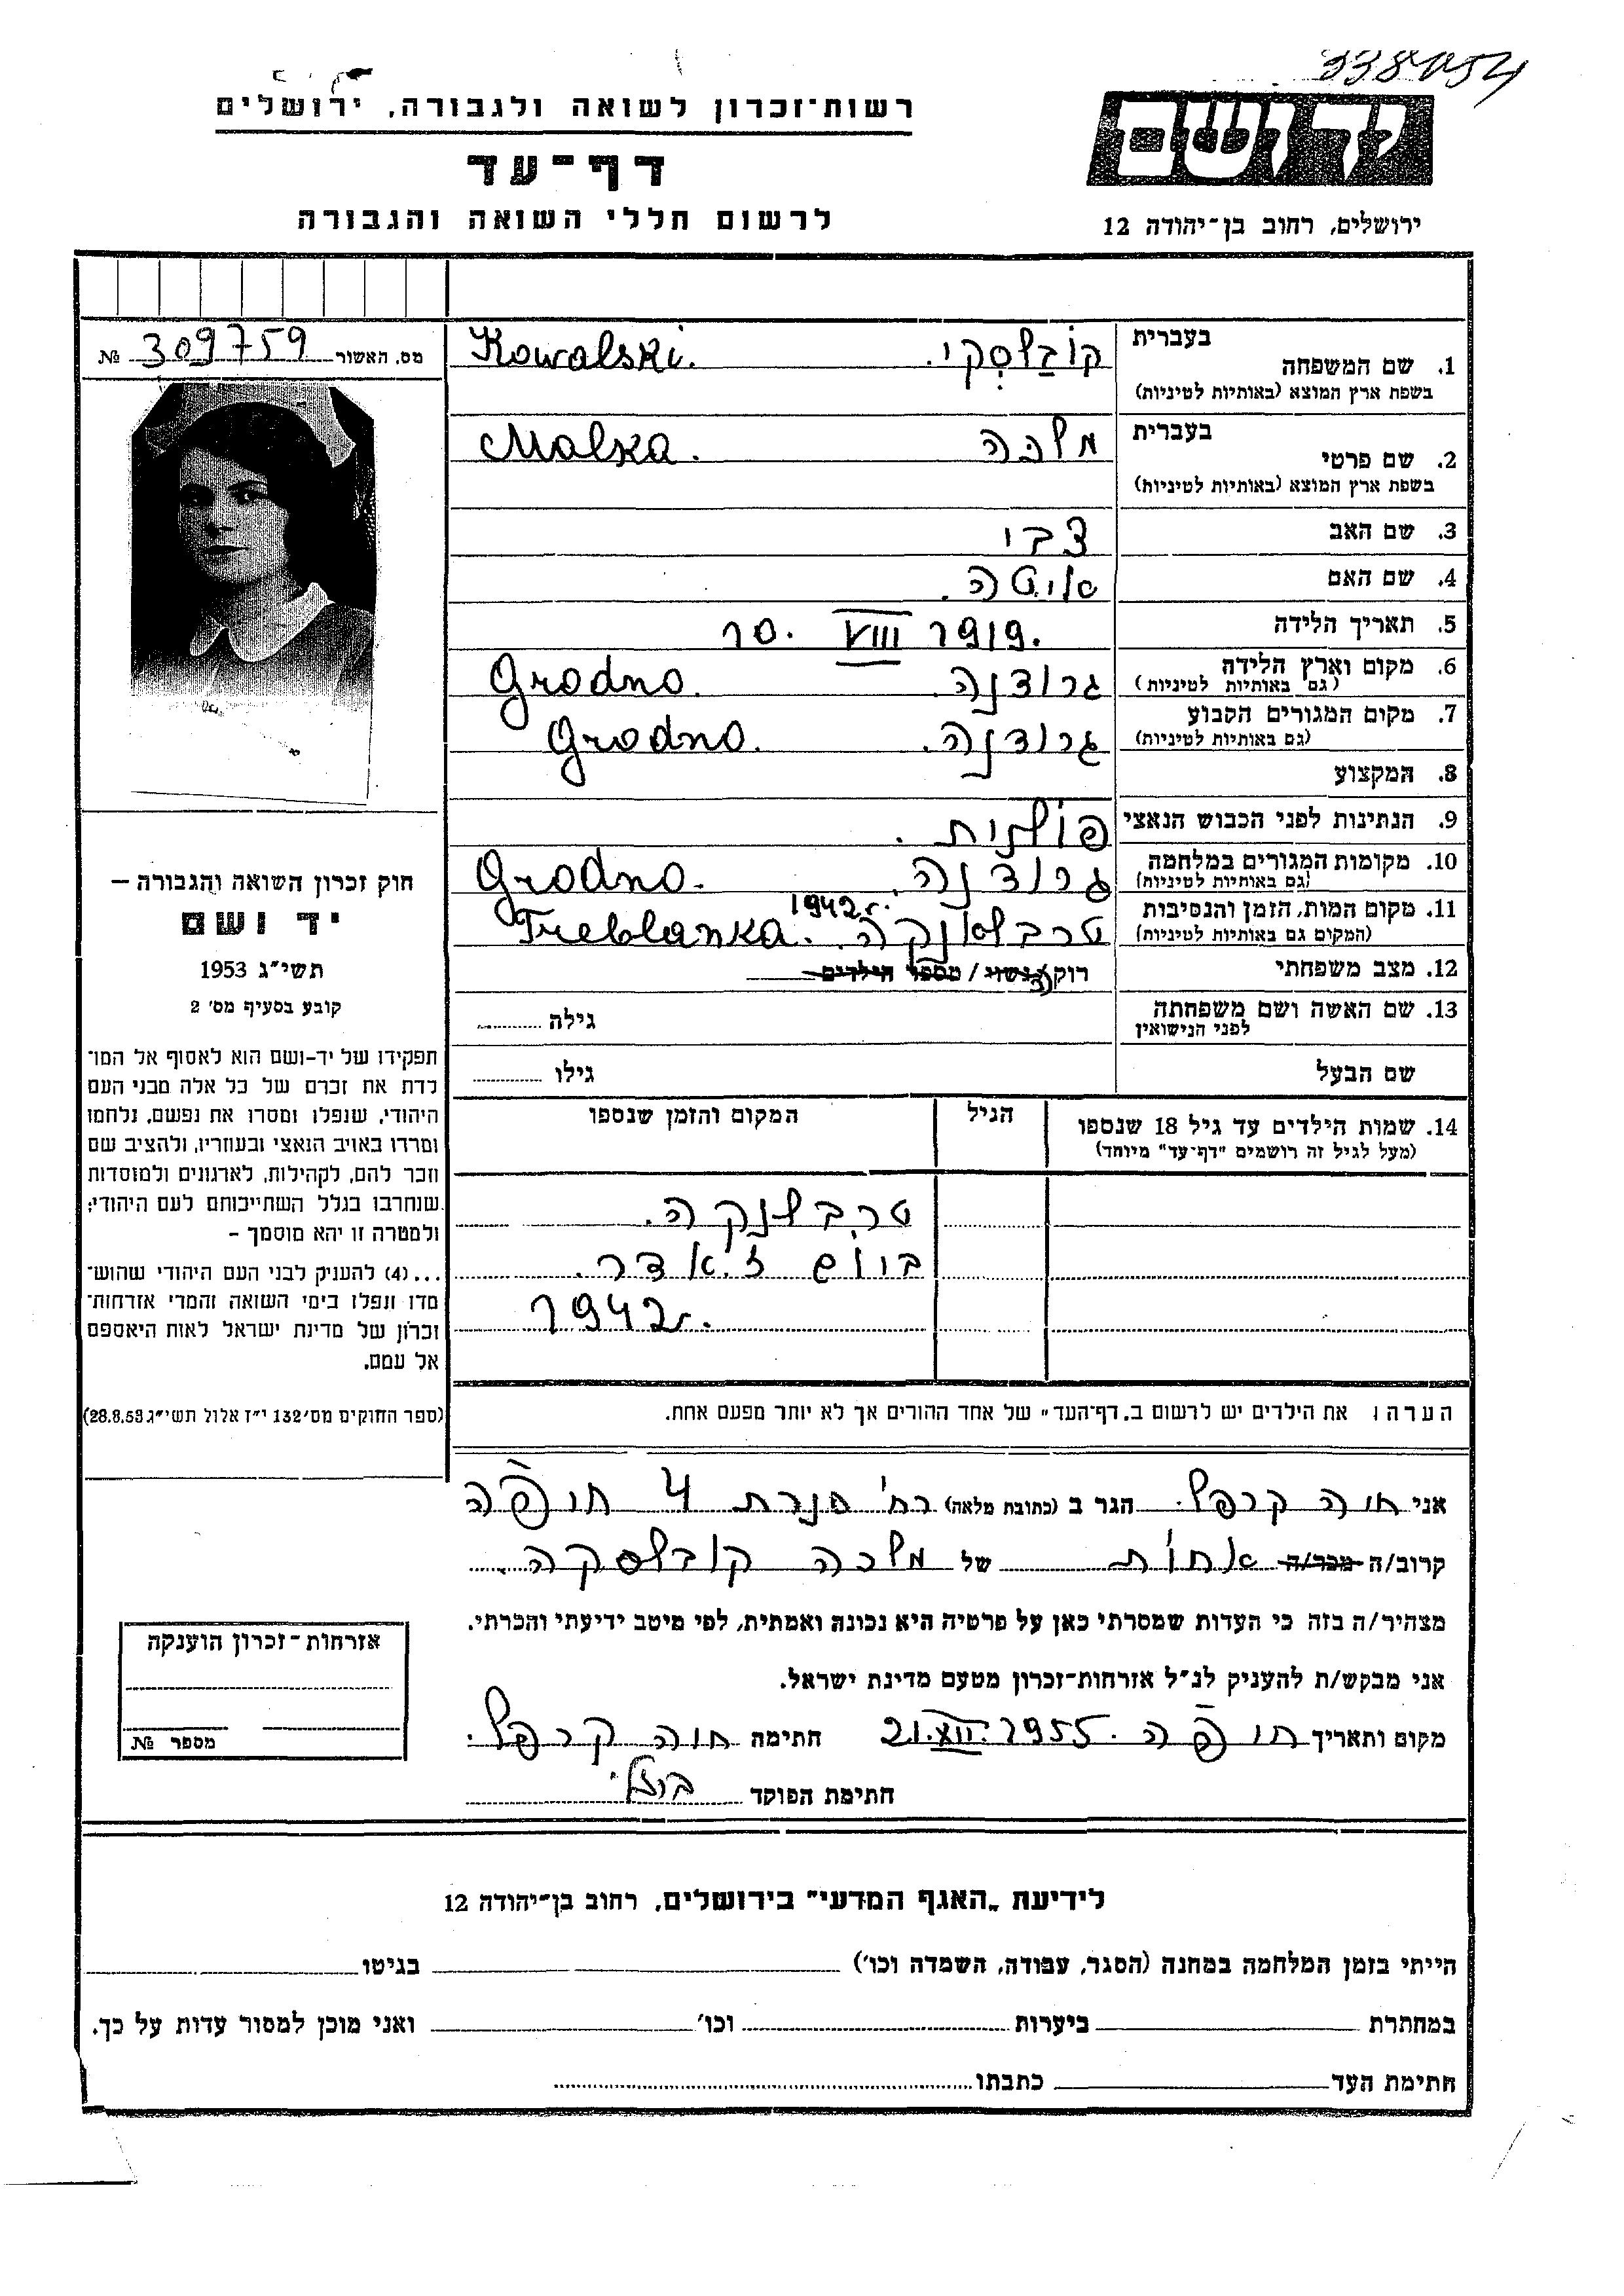 338054
רשות־זכרון לשואה ולגבורה, ירושלים
יד ושם
דף־עד
לרשום חללי השואה והגבורה
ירושלים, רחוב בן־יהודה 12
מס. האשור 309759 №
בעברית
1. שם המשפחה קוֹבַלסְקי. Kowalski.
בשפת ארץ המוצא (באותיות לטיניות)
בעברית
2. שם פרטי מלכה Malka.
בשפת ארץ המוצא (באותיות לטיניות)
3. שם האב צבי
4. שם האם איטה.
5. תאריך הלידה 10. VIII 1919.
6. מקום וארץ הלידה גרודנה. Grodno.
(גם באותיות לטיניות)
7. מקום המגורים הקבוע גרודנה. Grodno.
(גם באותיות לטיניות)
8. המקצוע
9. הנתינות לפני הכבוש הנאצי פולנית.
10. מקומות המגורים במלחמה גרודנה. Grodno.
(גם באותיות לטיניות)
11. מקום המות, הזמן והנסיבות טרבלאנקה. 1942 r. Treblanka.
(המקום גם באותיות לטיניות)
12. מצב משפחתי רוק/נשוי / מספר הילדים
13. שם האשה ושם משפחתה גילה
לפני הנישואין
שם הבעל גילו
14. שמות הילדים עד גיל 18 שנספו הגיל המקום והזמן שנספו
(מעל לגיל זה רושמים "דף־עד" מיוחד)
טרבלנקה.
ז. אדר.
1942 r.
הערה: את הילדים יש לרשום ב„דף־העד" של אחד ההורים אך לא יותר מפעם אחת.
חוק זכרון השואה והגבורה —
יד ושם
תשי"ג 1953
קובע בסעיף מס' 2
תפקידו של יד-ושם הוא לאסוף אל המו־
לדת את זכרם של כל אלה מבני העם
היהודי, שנפלו ומסרו את נפשם, נלחמו
ומרדו באויב הנאצי ובעוזריו, ולהציב שם
וזכר להם, לקהילות, לארגונים ולמוסדות
שנחרבו בגלל השתייכותם לעם היהודי;
ולמטרה זו יהא מוסמך –
...(4) להעניק לבני העם היהודי שהוש־
מדו ונפלו בימי השואה והמרי אזרחות־
זכרון של מדינת ישראל לאות היאספם
אל עמם.
(ספר החוקים מס' 132 י"ז אלול תשי"ג 28.8.53)
אני חוה קרפל. הגר ב (כתובת מלאה) רח' כנרת 4 חיפה
קרוב/ה מכר/ה אחות של מלכה קובלסקה.
מצהיר/ה בזה כי העדות שמסרתי כאן על פרטיה היא נכונה ואמתית, לפי מיטב ידיעתי והכרתי.
אני מבקש/ת להעניק לנ"ל אזרחות־זכרון מטעם מדינת ישראל.
מקום ותאריך חיפה. 21.XII.1955 חתימה חוה קרפל.
חתימת הפוקד
אזרחות־זכרון הוענקה
מספר №
לידיעת „האגף המדעי" בירושלים, רחוב בן־יהודה 12
הייתי בזמן המלחמה במחנה (הסגר, עבודה, השמדה וכו') בגיטו
במחתרת ביערות וכו' ואני מוכן למסור עדות על כך.
חתימת העד כתבתו